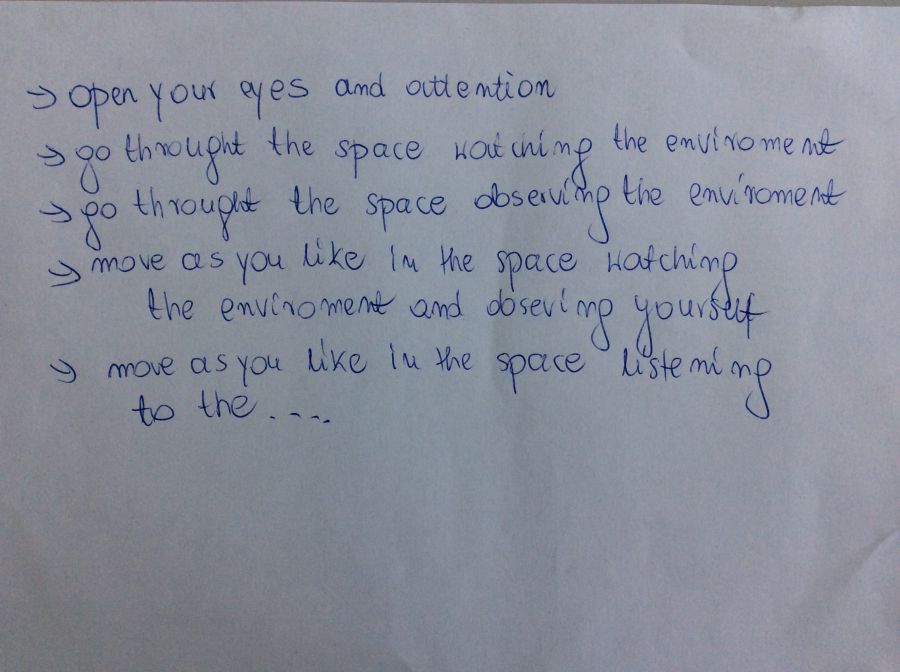 → open your eyes and attention
→ go throught the space watching the enviroment
→ go throught the space observing the enviroment
→ move as you like in the space watching
the enviroment and obseving yourself
→ move as you like in the space listening
to the....